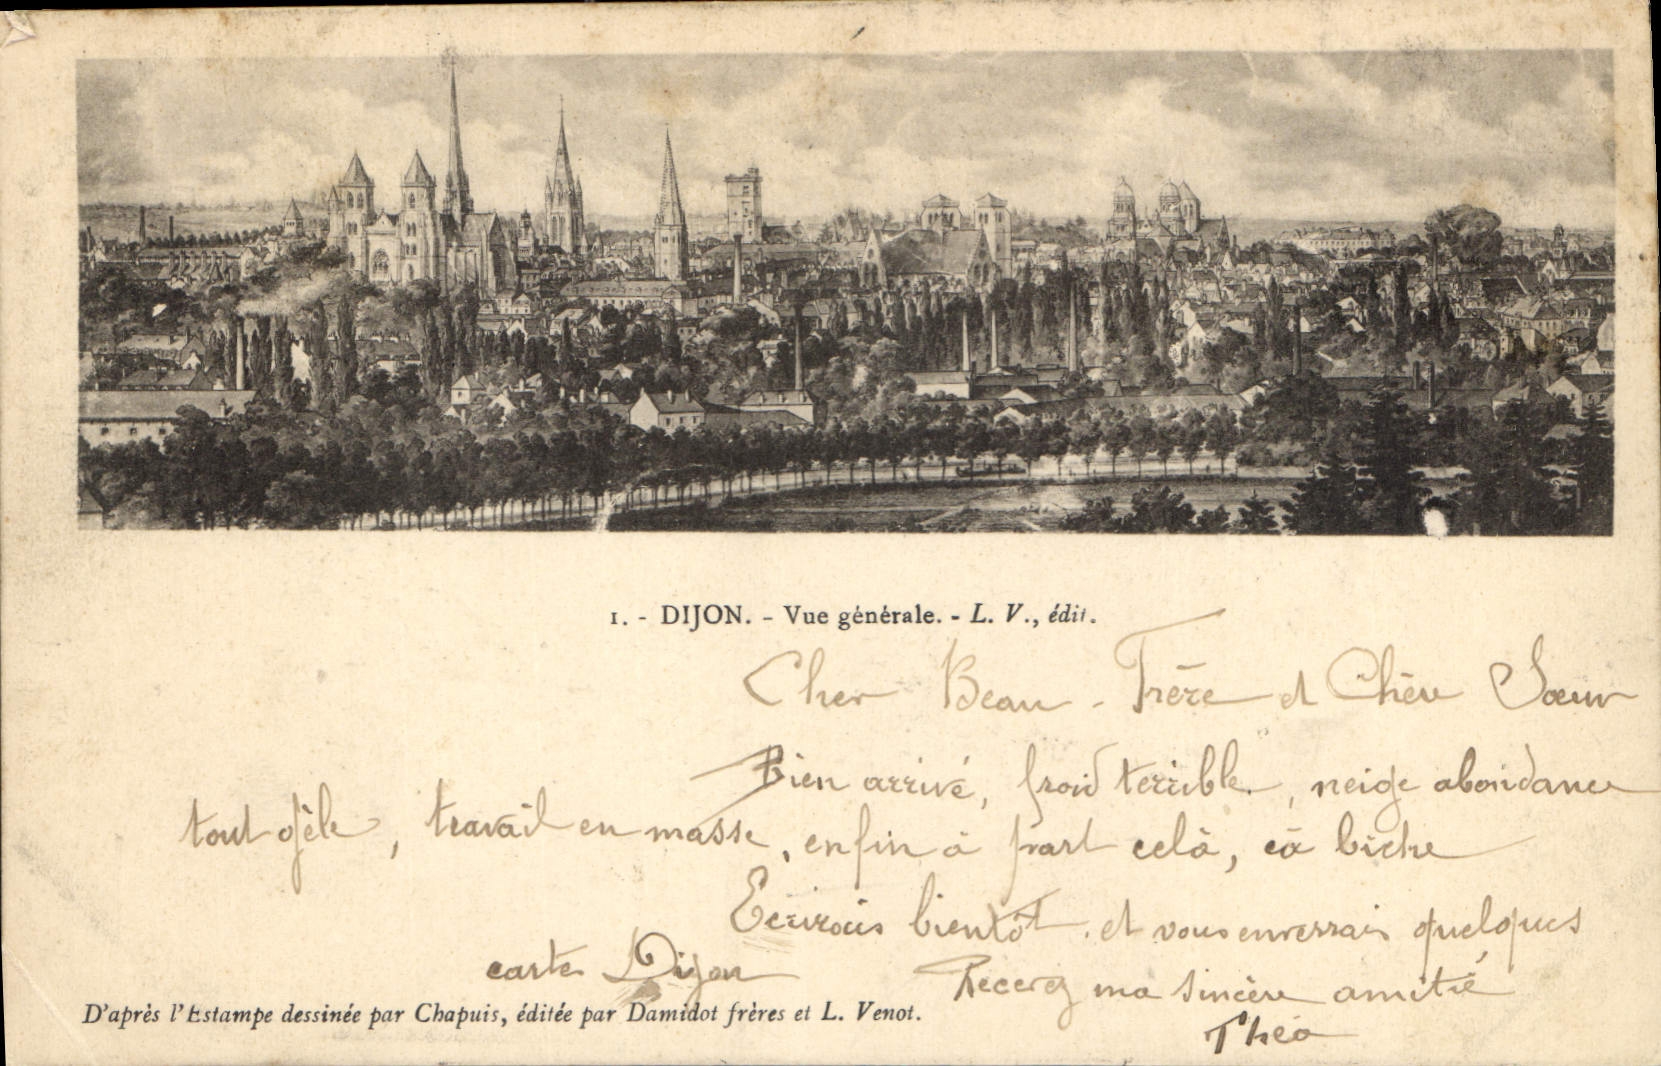 1. - DIJON. - Vue générale. - L. V., édit.
Cher Beau-Frère et Chère Sœur
Bien arrivé, froid terrible, neige abondance
tout gèle, travail en masse, enfin à part celà, ça biche
Ecrirais bientôt et vous enverrais quelques
cartes Dijon Recevez ma sincère amitié
D'après l'Estampe dessinée par Chapuis, éditée par Damidot frères et L. Venot.
Théo